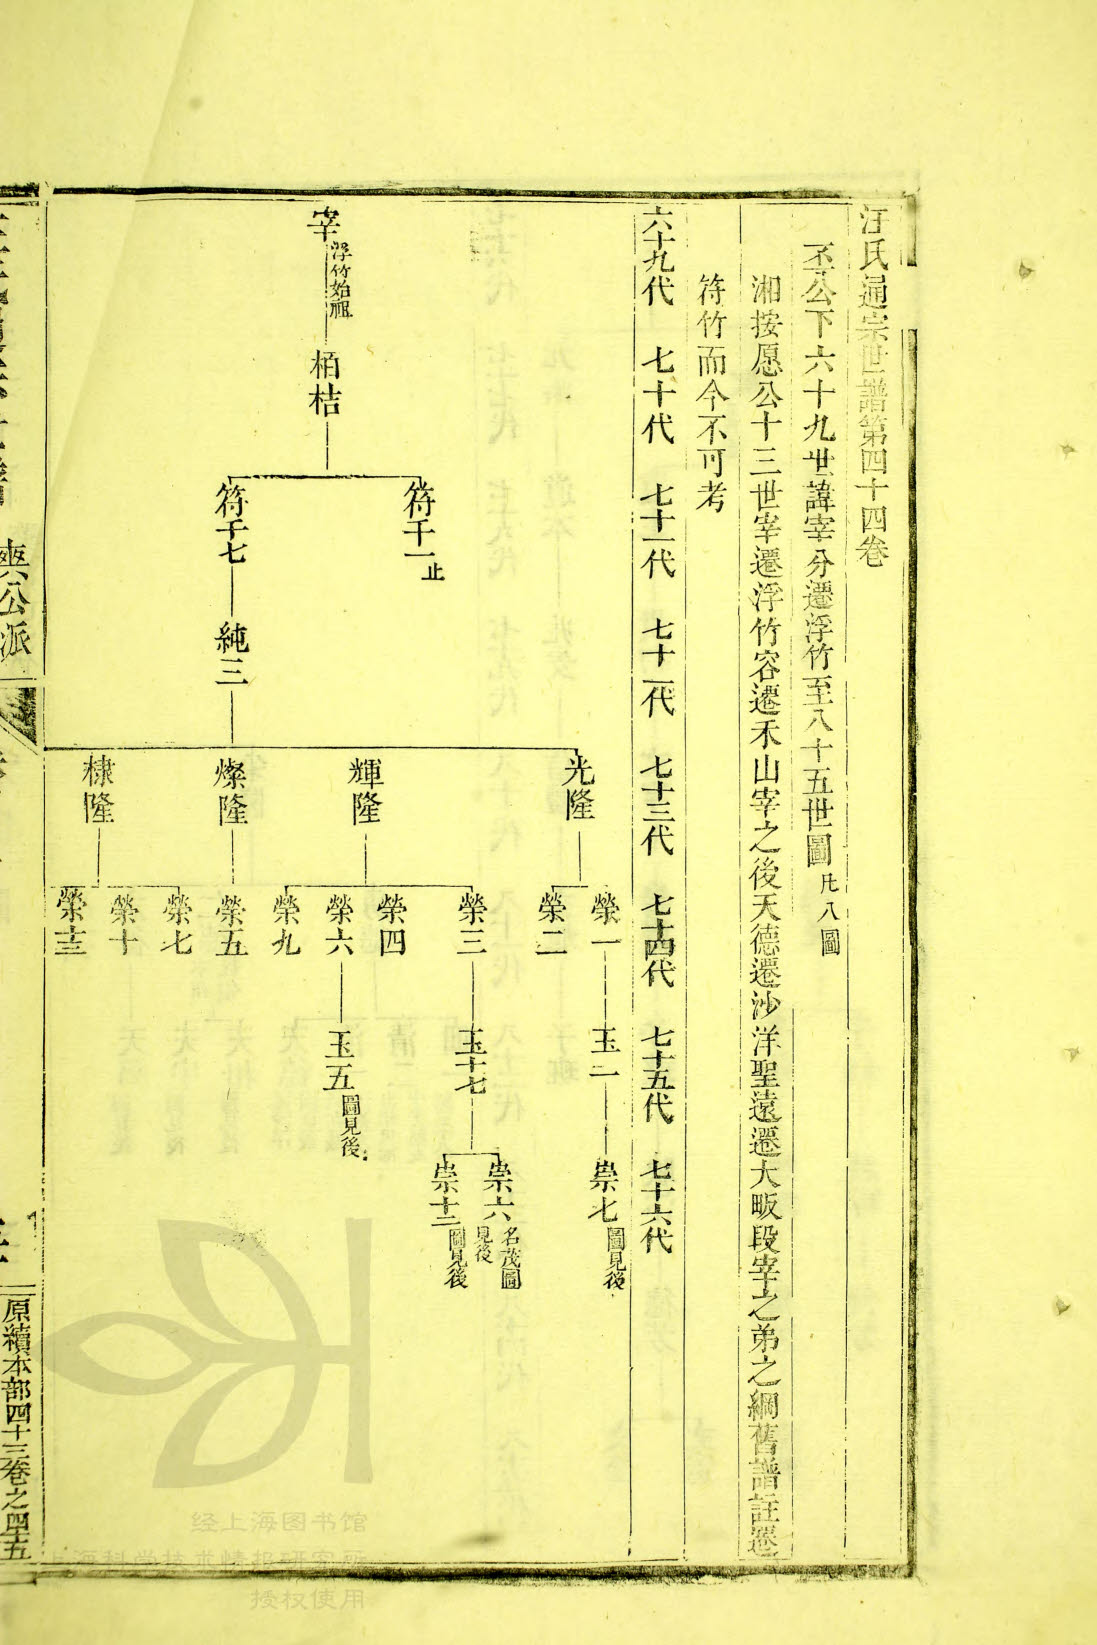 汪氏通宗世譜第四十四卷
丕公下六十九世諱宰分遷浮竹至八十五世圖凡八圖
湘按愿公十三世宰遷浮竹容遷禾山宰之後天德遷沙洋聖遠遷大畈段宰之弟之綱舊譜註遷
符竹而今不可考
六十九代 七十代 七十一代 七十二代 七十三代 七十四代 七十五代 七十六代
宰 浮竹始祖
栢桔
符千一 止
符千七
純三
光隆
輝隆
燦隆
棣隆
榮一
榮二
榮三
榮四
榮六
榮九
榮五
榮七
榮十
榮十三
玉二
玉十七
玉五 圖見後
崇七 圖見後
崇六 名茂圖見後
崇十二 圖見後
爽公派
原續本部四十三卷之四十五
经上海图书馆
上海科学技术情报研究所
授权使用